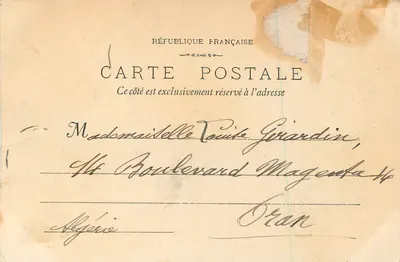 RÉPUBLIQUE FRANÇAISE
CARTE POSTALE
Ce côté est exclusivement réservé à l'adresse
Mademoiselle Louise Girardin,
14 Boulevard Magenta 14
Oran
Algérie